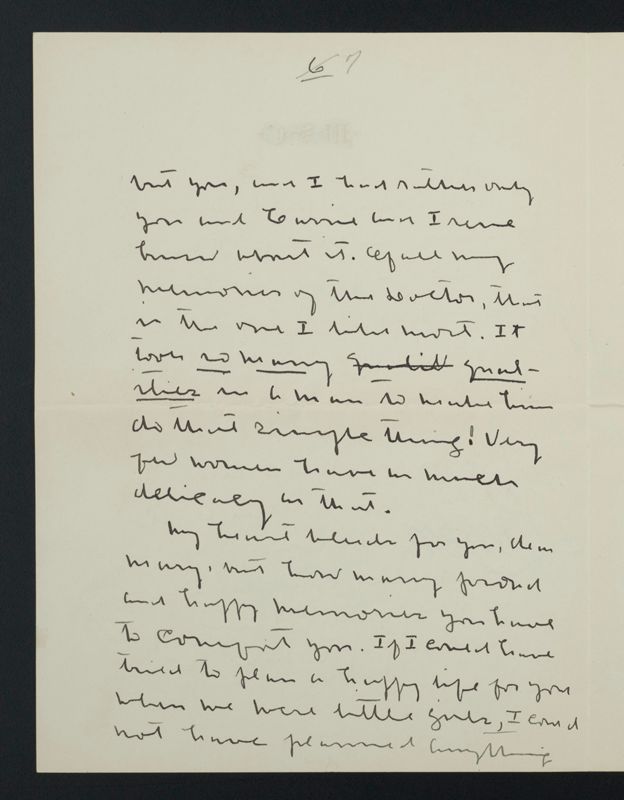 6 7
but you, and I had rather only
you and Carrie and Irene
knew about it. Of all my
memories of the Doctor, that
is the one I like most. It
took so many qualit qual-
ities in a man to make him
do that simple thing! Very
few women have as much
delicacy as that.
My heart bleeds for you, dear
Mary, but how many proud
and happy memories you have
to comfort you. If I could have
tried to plan a happy life for you
when we were little girls, I could
not have planned anything